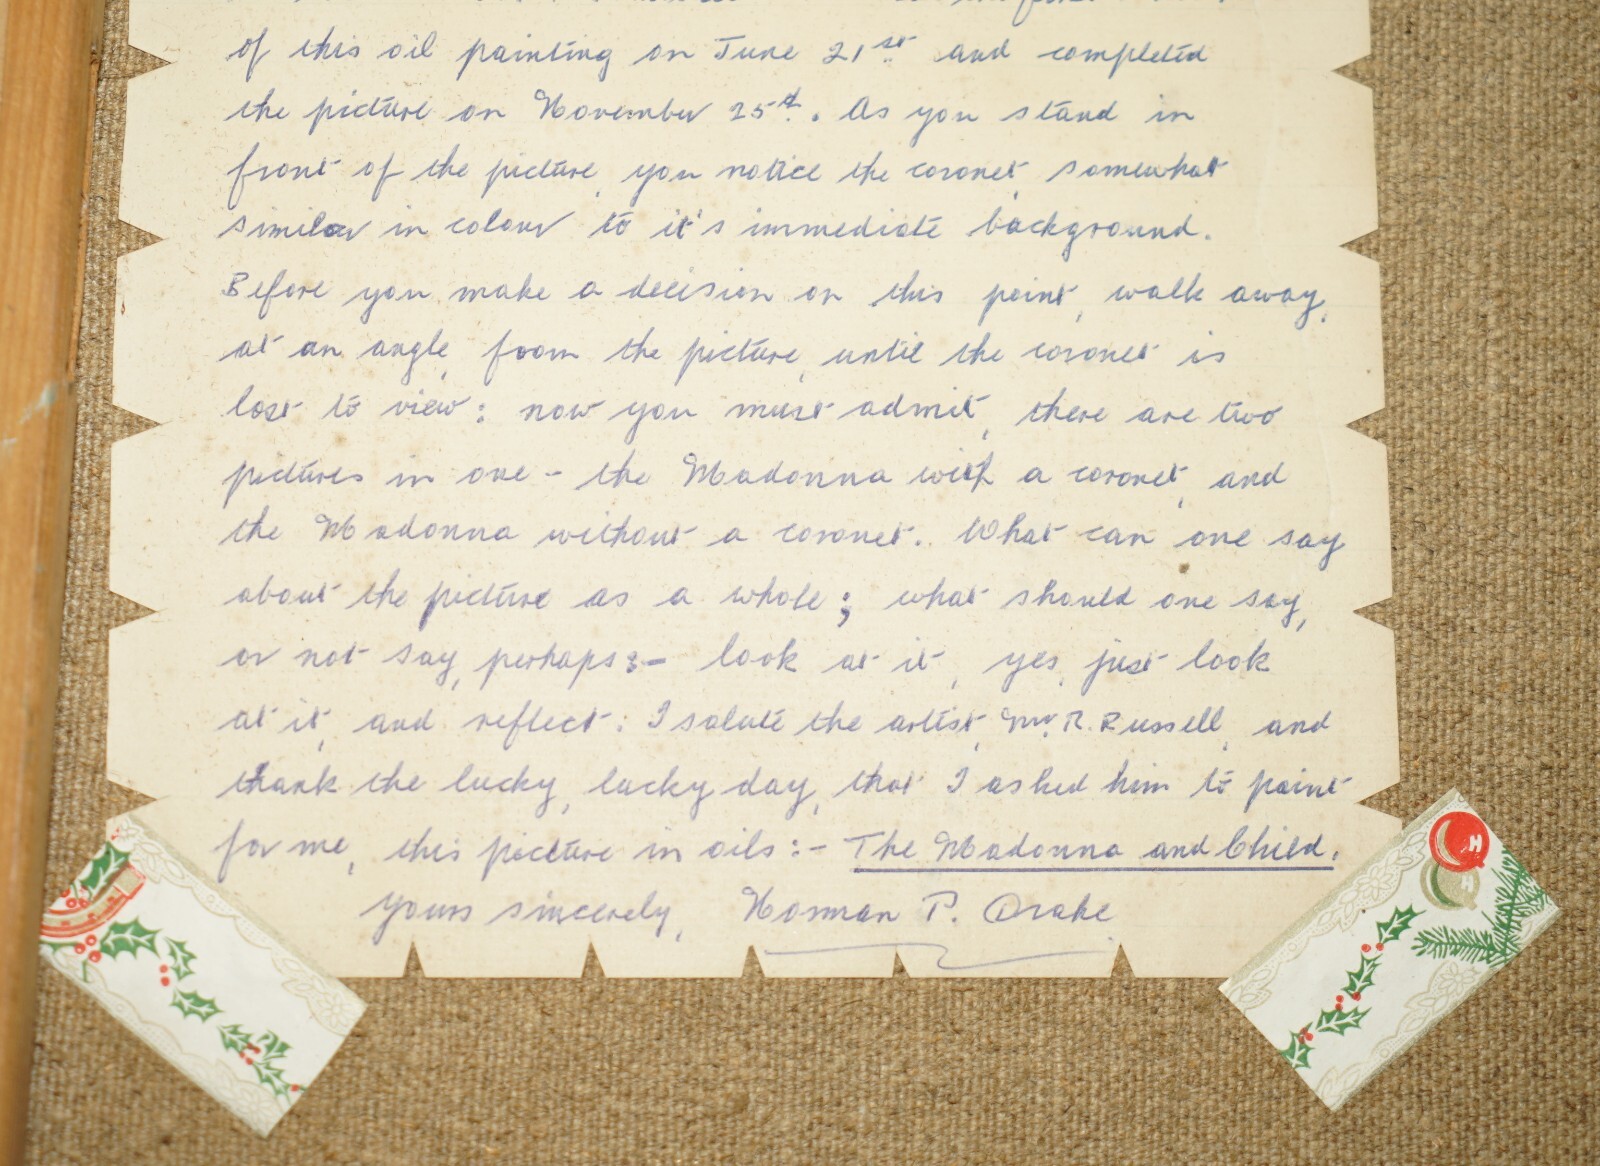 of this oil painting on June 21st. and completed
the picture on November 25th. As you stand in
front of the picture, you notice the coronet, somewhat
similar in colour to it's immediate background.
Before you make a decision on this point, walk away,
at an angle, from the picture, until the coronet is
lost to view: now you must admit, there are two
pictures in one - the Madonna with a coronet, and
the Madonna without a coronet. What can one say
about the picture as a whole; what should one say,
or not say, perhaps:- look at it, yes, just look
at it, and reflect: I salute the artist, Mr. R. Russell, and
thank the lucky, lucky day, that I asked him to paint
for me, this picture in oils:- The Madonna and Child.
Yours sincerely, Norman P. Drake
H
H